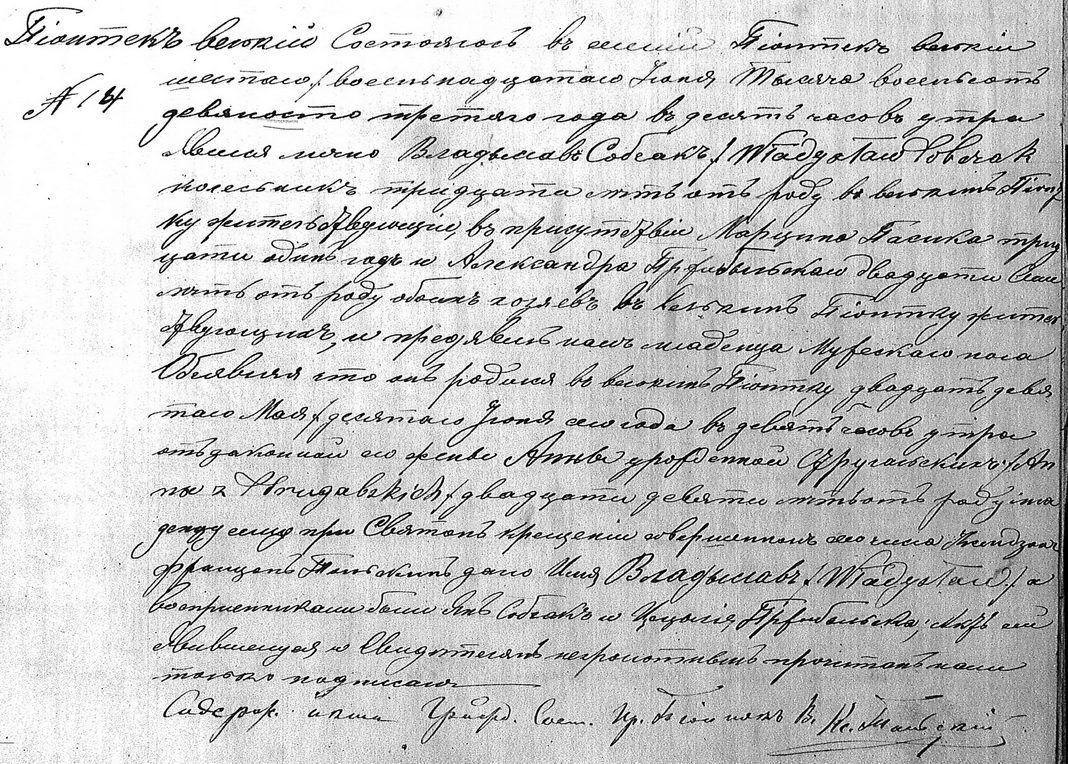 Піонтекъ велкій Состоялось въ селеній Піонтекъ велкій
шестаго/восемьнадцатаго Іюня Тысяча восемьсотъ
№ 14
девяносто третяго года въ десять часовъ утра
Явился лично Владыславъ Собчакъ / Władysław Sobczak
колесникъ тридцати лѣтъ отъ роду въ велкимъ Піонт
ку жительствующій, въ присутствіи Марцина Пасика трид
цати одинъ годъ и Александра Пржибыльскаго двадцати семи
лѣтъ отъ роду обоихъ въ велкимъ Піонтку житель
ствующихъ, и предявилъ намъ младенца Мужескаго пола
Объявляя что онъ родился въ велкимъ Піонтку двадцать девя
таго Мая/десятаго Іюня сего года въ девять часовъ утра
отъ законной его жены Анны урожденной /An
na z двадцати девяти лѣтъ отъ роду мла
денцу сему при Святомъ крещеніи совершенномъ сего числа Ксендзомъ
Францомъ дано Имя Владыславъ /Władysław/ а
воспріемниками были Янъ Собчакъ и Пржибыльска, актъ сей
Явившемуся и Свидѣтелямъ неграмотнымъ прочитанъ нами
только подписанъ
Содерж. акты Гражд. Сост. Пр. В. Кс.